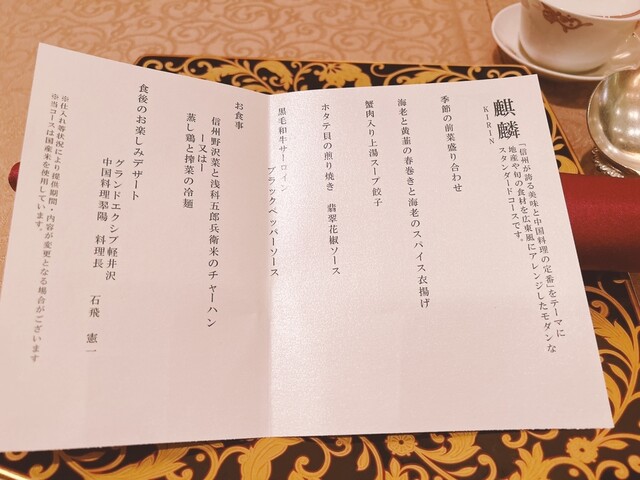 麒麟
KIRIN
「信州が誇る美味と中国料理の定番」をテーマに
地産や旬の食材を広東風にアレンジしたモダンな
スタンダードコースです。
季節の前菜盛り合わせ
海老と黄韮の春巻きと海老のスパイス衣揚げ
蟹肉入り上湯スープ餃子
ホタテ貝の煎り焼き 翡翠花椒ソース
黒毛和牛サーロイン
ブラックペッパーソース
お食事
信州野沢菜と浅科五郎兵衛米のチャーハン
ー又はー
蒸し鶏と搾菜の冷麺
食後のお楽しみデザート
グランドエクシブ軽井沢
中国料理翠陽 料理長 石飛 憲一
※仕入れ等状況により提供期間・内容が変更となる場合がございます
※当コースは国産米を使用しています。